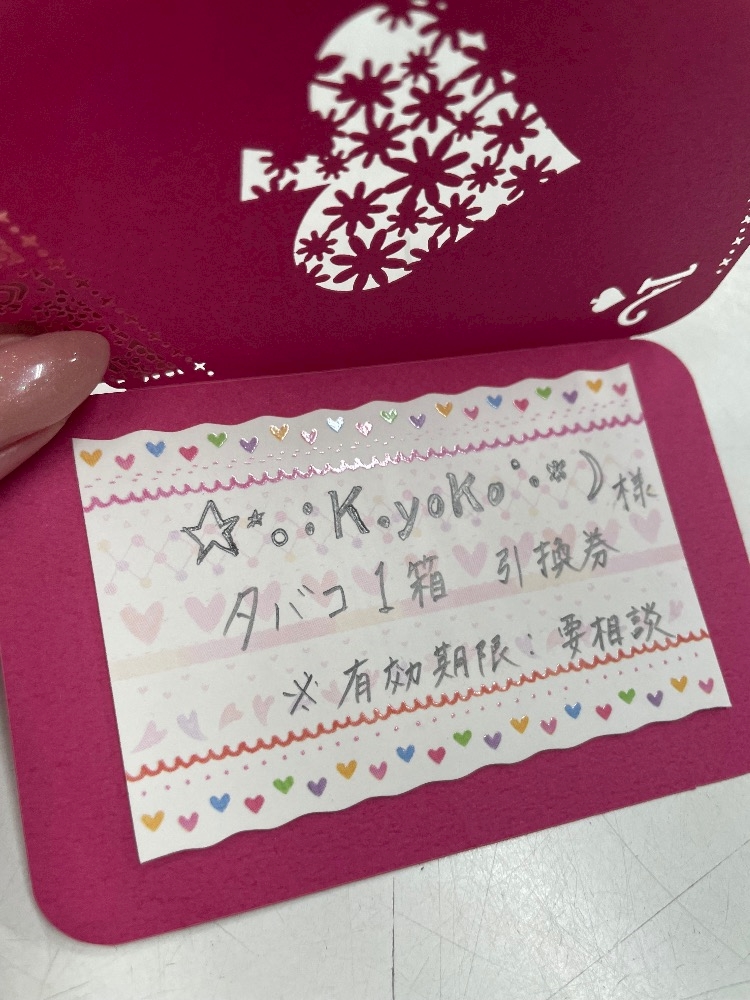 ☆*。:K.yoKo゚.*☽様
タバコ1箱 引換券
※有効期限:要相談